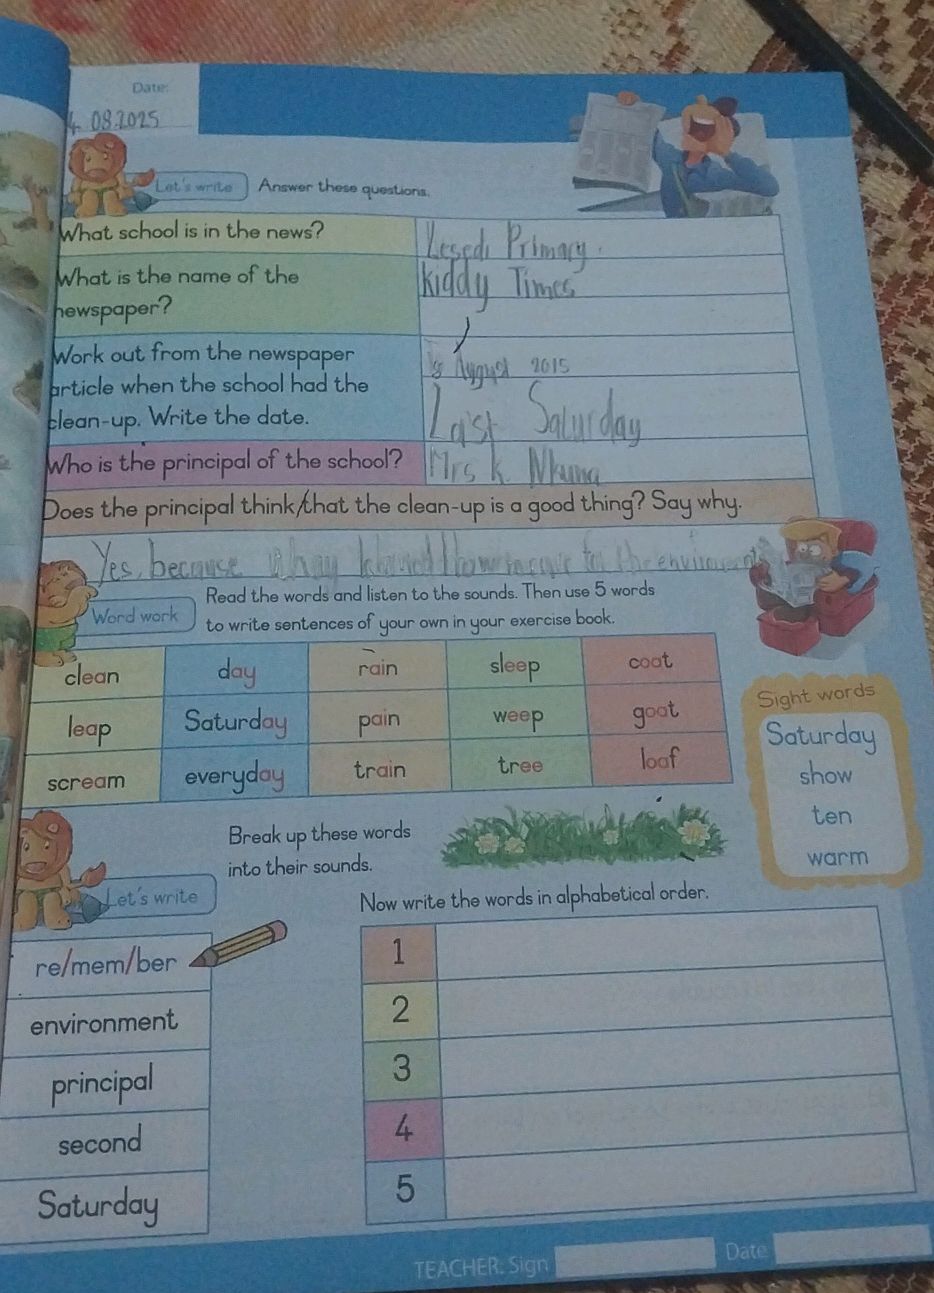 Date:
08.2025
Let's write
Answer these questions.
What school is in the news?
Lesedi Primary.
What is the name of the
newspaper?
Kiddy Times
Work out from the newspaper
article when the school had the
clean-up. Write the date.
August 2015
Last Saturday
Who is the principal of the school?
Mrs K. Nkuna
Does the principal think/that the clean-up is a good thing? Say why.
Yes, because to the environment
Word work
Read the words and listen to the sounds. Then use 5 words
to write sentences of your own in your exercise book.
clean day rain sleep coat
leap Saturday pain weep goat
scream everyday train tree loaf
Sight words
Saturday
show
ten
warm
Let's write
Break up these words
into their sounds.
re/mem/ber
environment
principal
second
Saturday
Now write the words in alphabetical order.
1
2
3
4
5
TEACHER: Sign
Date